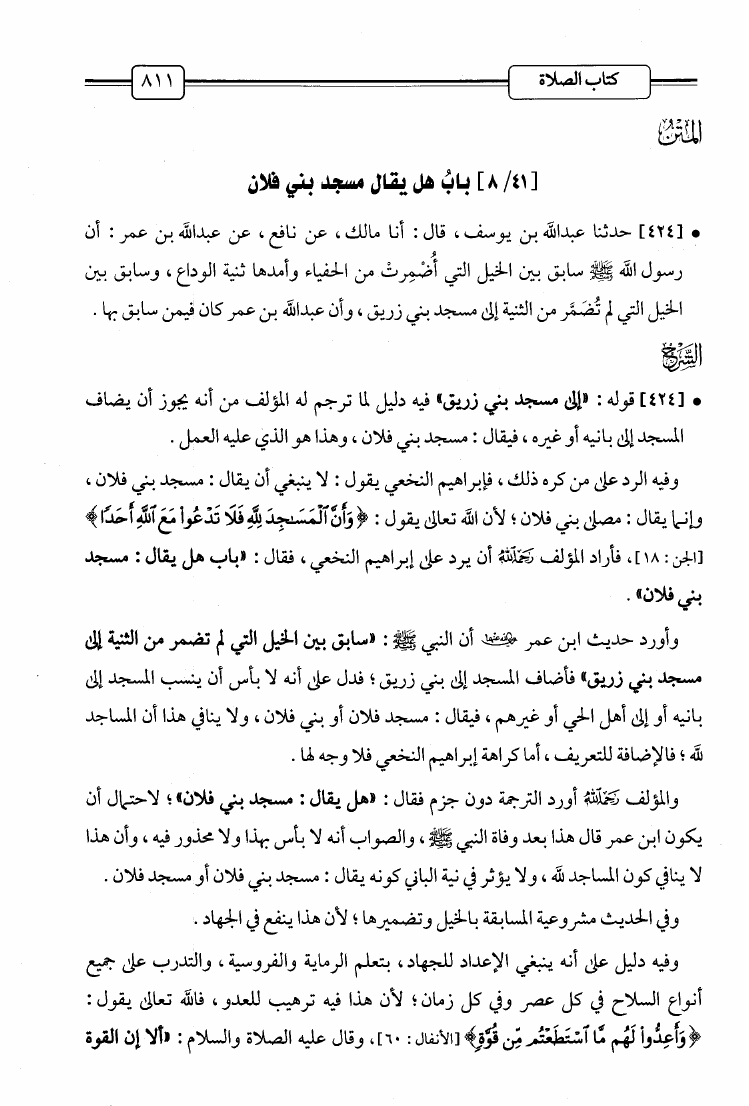 كتاب الصلاة
٨١١
المتن
[٨/٤١] بابُ هل يقال مسجد بني فلان
• [٤٢٤] حدثنا عبدالله بن يوسف، قال: أنا مالك، عن نافع، عن عبدالله بن عمر: أن
رسول الله ﷺ سابق بين الخيل التي أُضْمِرتْ من الحفياء وأمدها ثنية الوداع، وسابق بين
الخيل التي لم تُضَمَّر من الثنية إلى مسجد بني زريق، وأن عبدالله بن عمر كان فيمن سابق بها.
الشرح
• [٤٢٤] قوله: «إلى مسجد بني زريق» فيه دليل لما ترجم له المؤلف من أنه يجوز أن يضاف
المسجد إلى بانيه أو غيره، فيقال: مسجد بني فلان، وهذا هو الذي عليه العمل.
وفيه الرد على من كره ذلك، فإبراهيم النخعي يقول: لا ينبغي أن يقال: مسجد بني فلان،
وإنما يقال: مصلى بني فلان؛ لأن الله تعالى يقول: ﴿وَأَنَّ ٱلْمَسَـٰجِدَ لِلَّهِ فَلَا تَدْعُواْ مَعَ ٱللَّهِ أَحَدًا﴾
[الجن: ١٨]، فأراد المؤلف رَحِمَهُ اللهُ أن يرد على إبراهيم النخعي، فقال: «باب هل يقال: مسجد
بني فلان».
وأورد حديث ابن عمر رضي الله عنهما أن النبي ﷺ: «سابق بين الخيل التي لم تضمر من الثنية إلى
مسجد بني زريق» فأضاف المسجد إلى بني زريق؛ فدل على أنه لا بأس أن ينسب المسجد إلى
بانيه أو إلى أهل الحي أو غيرهم، فيقال: مسجد فلان أو بني فلان، ولا ينافي هذا أن المساجد
لله؛ فالإضافة للتعريف، أما كراهة إبراهيم النخعي فلا وجه لها.
والمؤلف رَحِمَهُ اللهُ أورد الترجمة دون جزم فقال: «هل يقال: مسجد بني فلان»؛ لاحتمال أن
يكون ابن عمر قال هذا بعد وفاة النبي ﷺ، والصواب أنه لا بأس بهذا ولا محذور فيه، وأن هذا
لا ينافي كون المساجد لله، ولا يؤثر في نية الباني كونه يقال: مسجد بني فلان أو مسجد فلان.
وفي الحديث مشروعية المسابقة بالخيل وتضميرها؛ لأن هذا ينفع في الجهاد.
وفيه دليل على أنه ينبغي الإعداد للجهاد، بتعلم الرماية والفروسية، والتدرب على جميع
أنواع السلاح في كل عصر وفي كل زمان؛ لأن هذا فيه ترهيب للعدو، فالله تعالى يقول:
﴿وَأَعِدُّواْ لَهُم مَّا ٱسْتَطَعْتُم مِّن قُوَّةٍ﴾ [الأنفال: ٦٠]، وقال عليه الصلاة والسلام: «ألا إن القوة